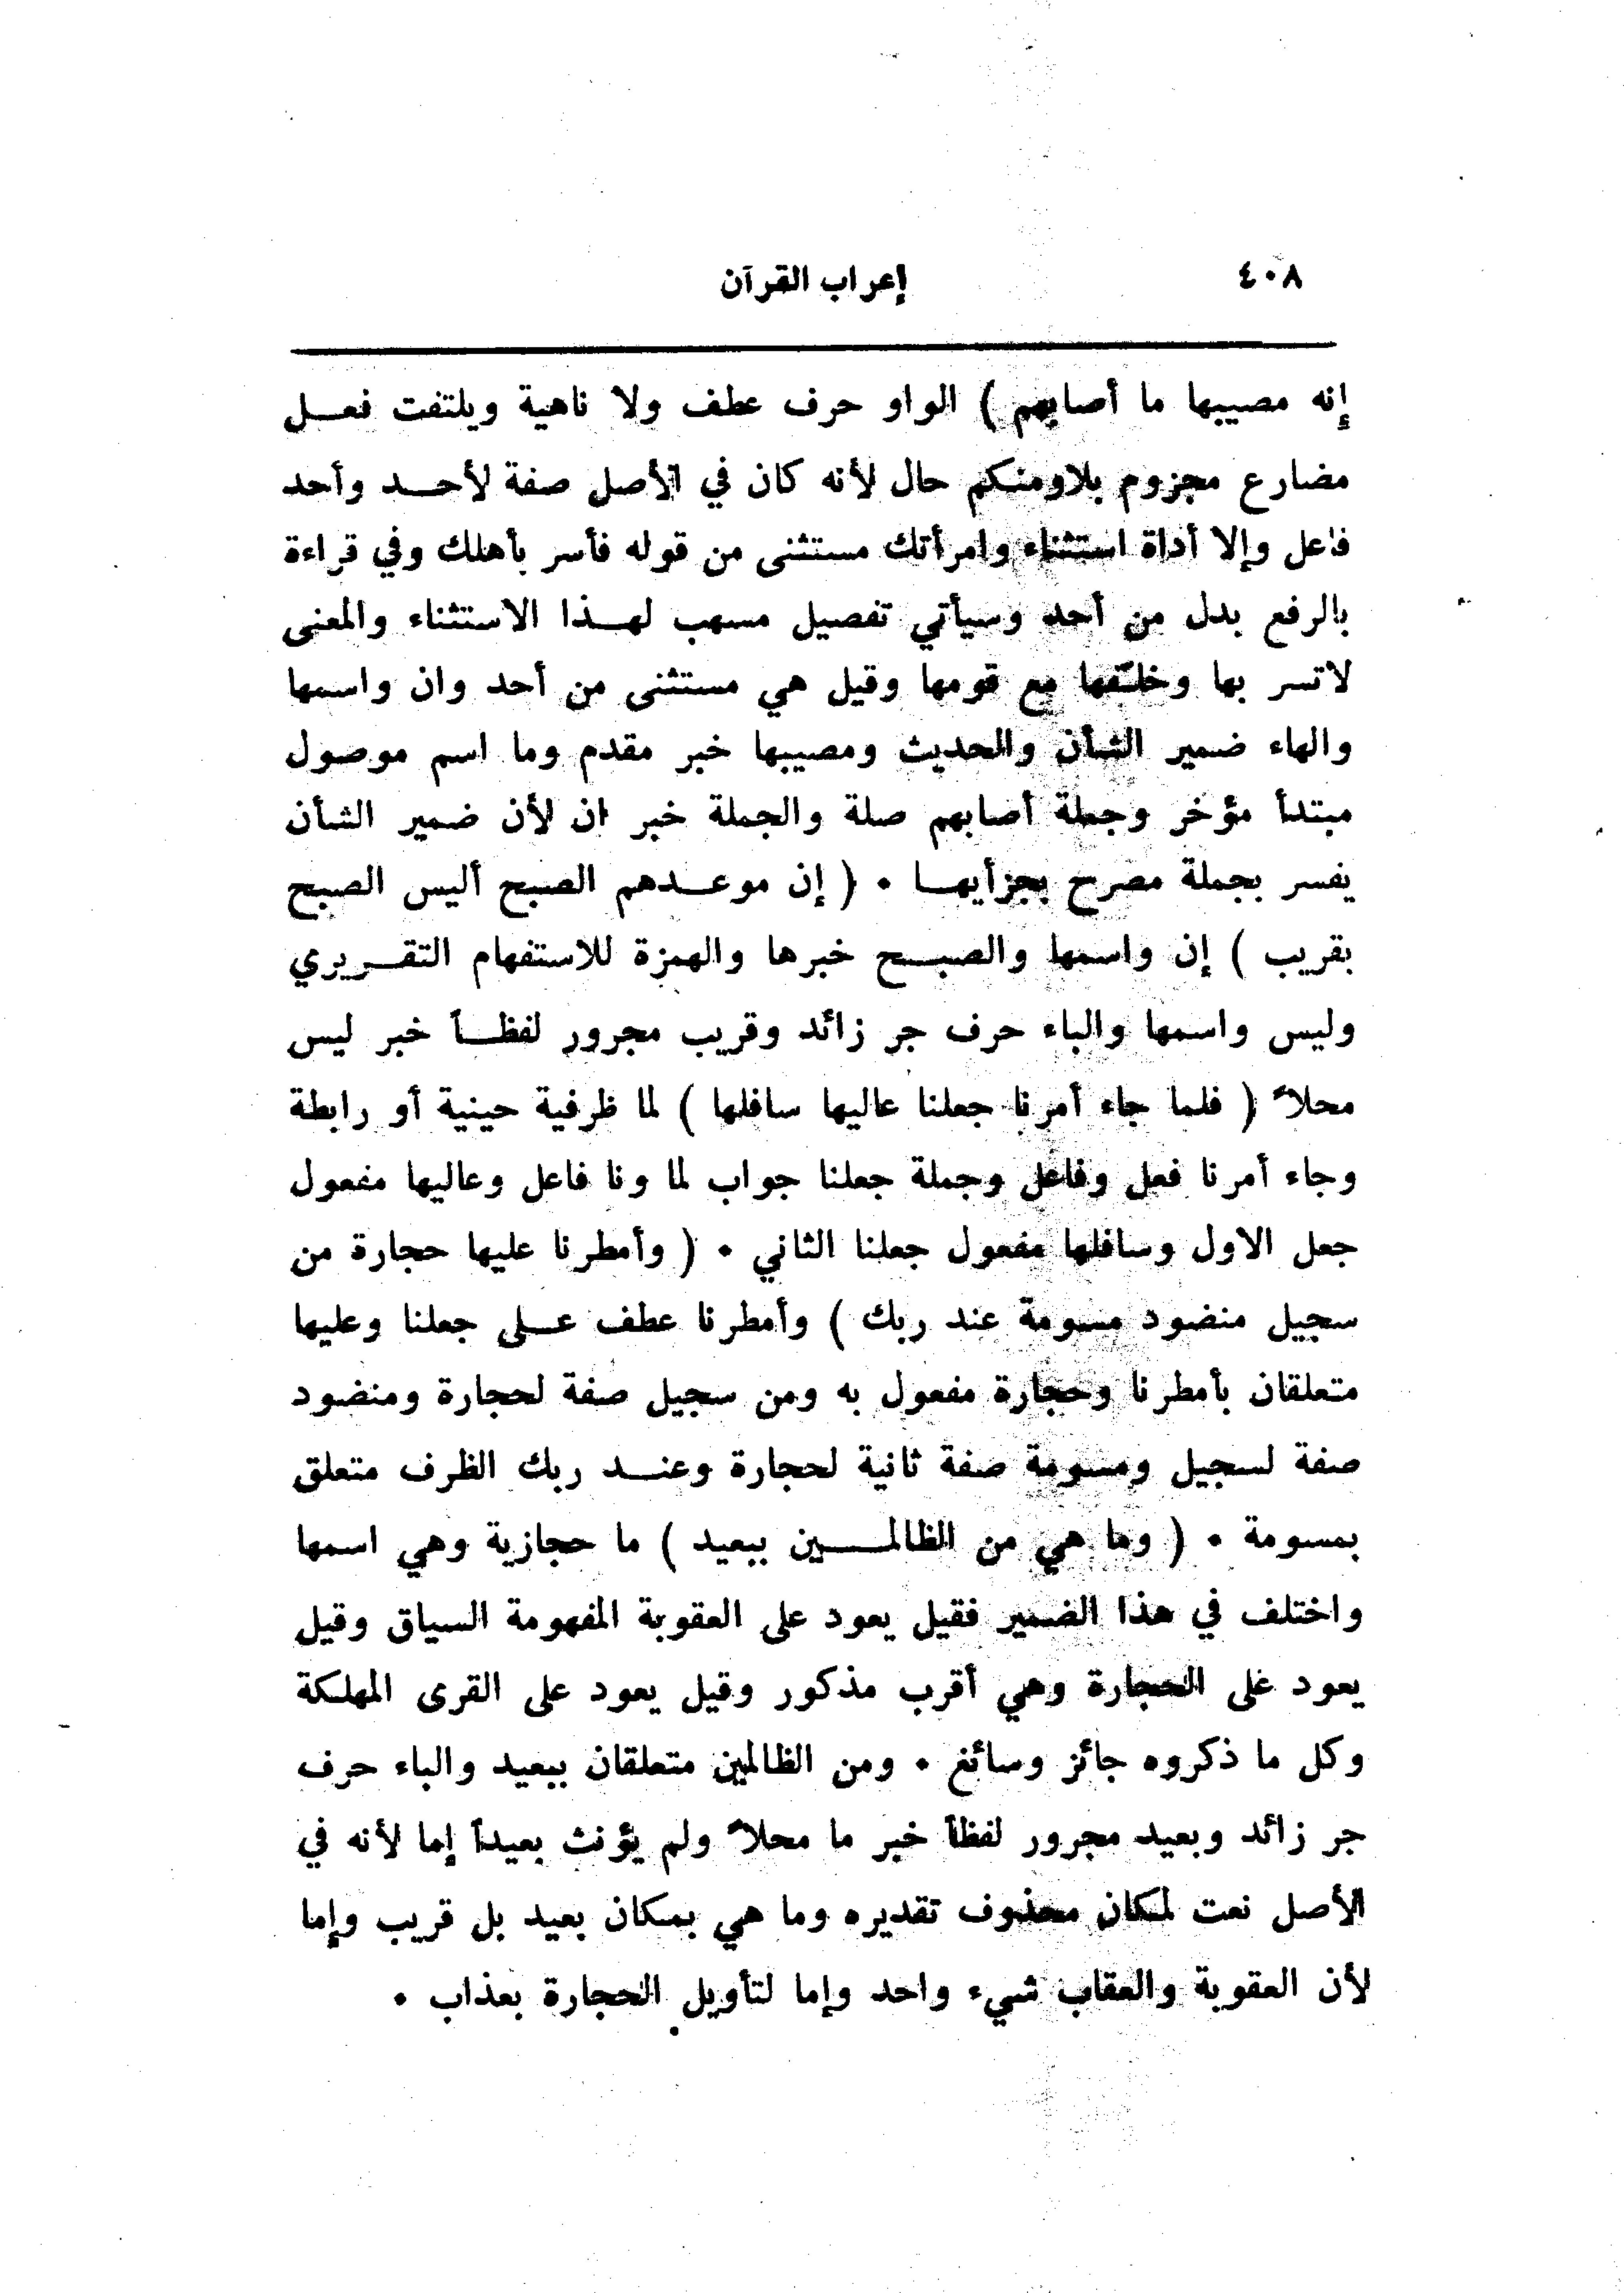 ٤٠٨
إعراب القرآن
إنه مصيبها ما أصابهم ) الواو حرف عطف ولا ناهية ويلتفت فعل
مضارع مجزوم بلا ومنكم حال لأنه كان في الأصل صفة لأحد وأحد
فاعل وإلا أداة استثناء وامرأتك مستثنى من قوله فأسر بأهلك وفي قراءة
بالرفع بدل من أحد وسيأتي تفصيل مسهب لهذا الاستثناء والمعنى
لاتسر بها وخلّفها مع قومها وقيل هي مستثنى من أحد وان واسمها
والهاء ضمير الشأن والحديث ومصيبها خبر مقدم وما اسم موصول
مبتدأ مؤخر وجملة أصابهم صلة والجملة خبر ان لأن ضمير الشأن
يفسر بجملة مصرح بجزأيها ٠ ( إن موعدهم الصبح أليس الصبح
بقريب ) إن واسمها والصبح خبرها والهمزة للاستفهام التقريري
وليس واسمها والباء حرف جر زائد وقريب مجرور لفظاً خبر ليس
محلاً ( فلما جاء أمرنا جعلنا عاليها سافلها ) لما ظرفية حينية أو رابطة
وجاء أمرنا فعل وفاعل وجملة جعلنا جواب لما ونا فاعل وعاليها مفعول
جعل الاول وسافلها مفعول جعلنا الثاني ٠ ( وأمطرنا عليها حجارة من
سجيل منضود مسومة عند ربك ) وأمطرنا عطف على جعلنا وعليها
متعلقان بأمطرنا وحجارة مفعول به ومن سجيل صفة لحجارة ومنضود
صفة لسجيل ومسومة صفة ثانية لحجارة وعند ربك الظرف متعلق
بمسومة ٠ ( وما هي من الظالمين ببعيد ) ما حجازية وهي اسمها
واختلف في هذا الضمير فقيل يعود على العقوبة المفهومة السياق وقيل
يعود على الحجارة وهي أقرب مذكور وقيل يعود على القرى المهلكة
وكل ما ذكروه جائز وسائغ ٠ ومن الظالمين متعلقان ببعيد والباء حرف
جر زائد وبعيد مجرور لفظاً خبر ما محلاً ولم يؤنث بعيداً إما لأنه في
الأصل نعت لمكان محذوف تقديره وما هي بمكان بعيد بل قريب وإما
لأن العقوبة والعقاب شيء واحد وإما لتأويل الحجارة بعذاب ٠